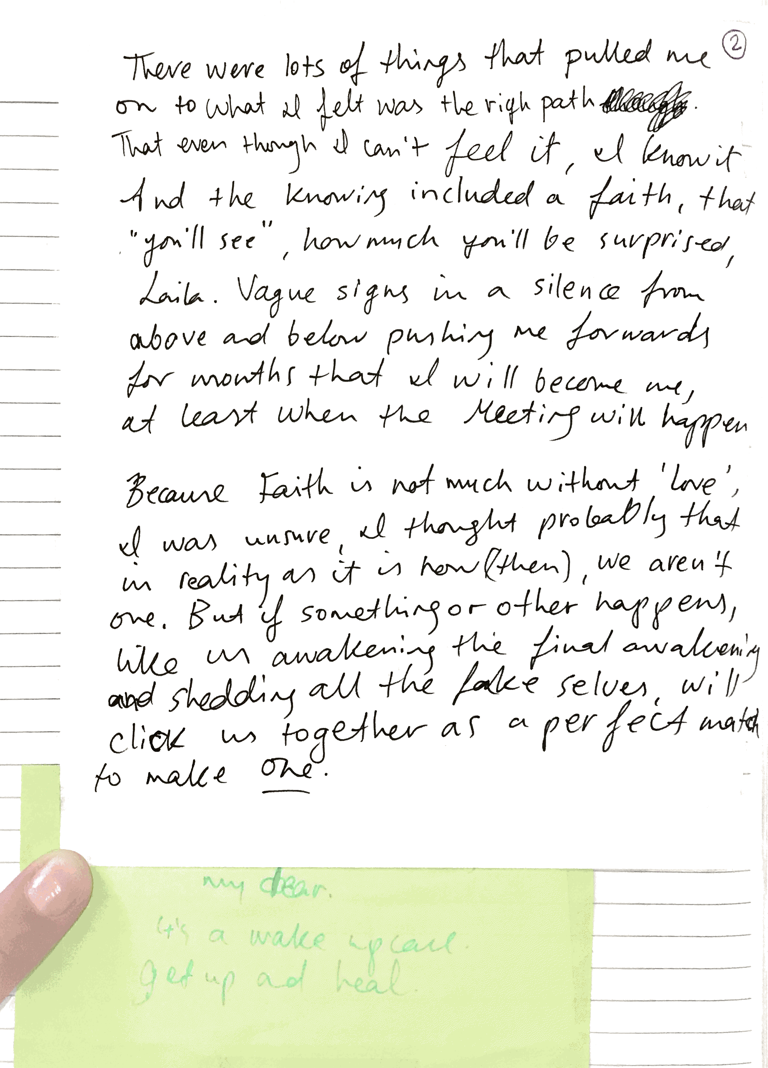 2
There were lots of things that pulled me
on to what I felt was the righ path
That even though I can't feel it, I know it
And the knowing included a faith, that
"you'll see", how much you'll be surprised,
Laila. Vague signs in a silence from
above and below pushing me forwards
for months that I will become me,
at least when the Meeting will happen
Because Faith is not much without 'love',
I was unsure, I thought probably that
in reality as it is now (then), we aren't
one. But if something or other happens,
like us awakening the final awakening
and shedding all the fake selves, will
click us together as a perfect match
to make one.
my dear.
it's a wake up call.
get up and heal.